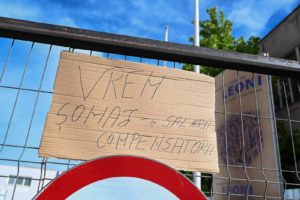 VREM
ȘOMAJ e SALARII
COMPENSATORII
LEONI
LEONI